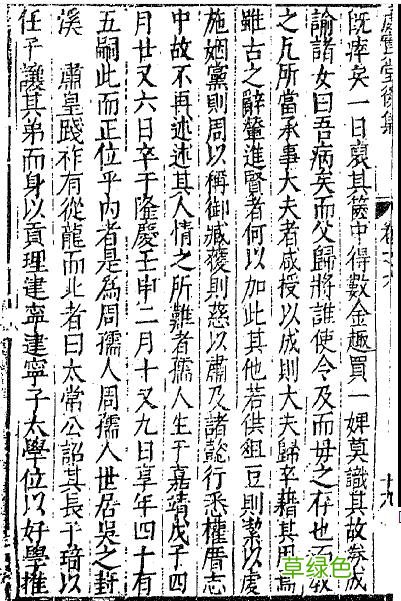 既瘁矣一日裒其篋中得數金趣買一婢莫識其故參成
諭諸女曰吾病矣而父歸將誰使令及而母之存也而教
之凡所當承事大夫者咸授以成則大夫歸卒藉其用焉
雖古之辭釐進賢者何以加此其他若供俎豆則絜以虔
施姻黨則周以稱御臧獲則慈以肅及諸懿行悉權厝志
中故不再述述其人情之所難者孺人生于嘉靖戊子四
月廿又六日卒于隆慶壬申二月十又九日享年四十有
五嗣此而正位乎內者是為周孺人周孺人世居吳之封
溪 肅皇踐祚有從龍而北者曰太常公詔其長子琦以
任子讓其弟而身以貢理建寧建寧子太學位以好學推
草绿色